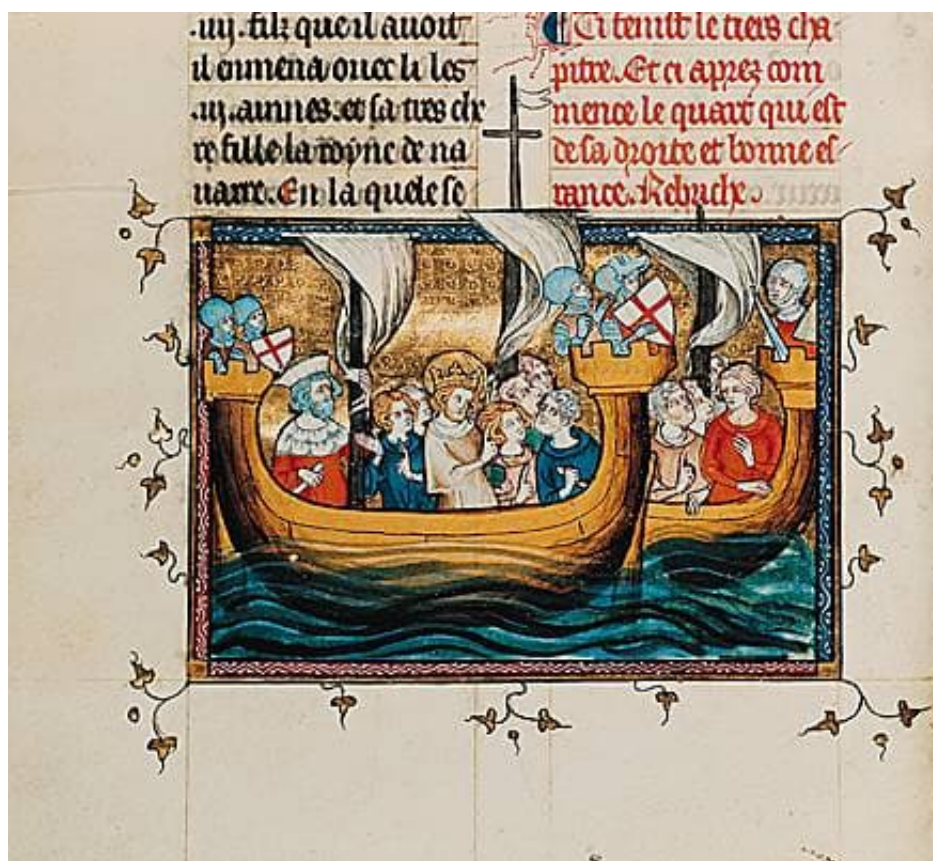 .iiij. filz que il auoit
il en mena ouec li les
.iij. ainnes. et sa tres chi
re fille la royne de na
uarre. En la quele se
Ci fenist le tiers cha
pitre. Et ci aprez com
mence le quart qui est
de sa droite et bonne es
rance. Rebriche.